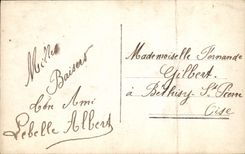 Mille
Baisers
Ton Ami
Lebelle Albert
Mademoiselle Fernande
Gilbert
à Béthisy St Pierre
Oise